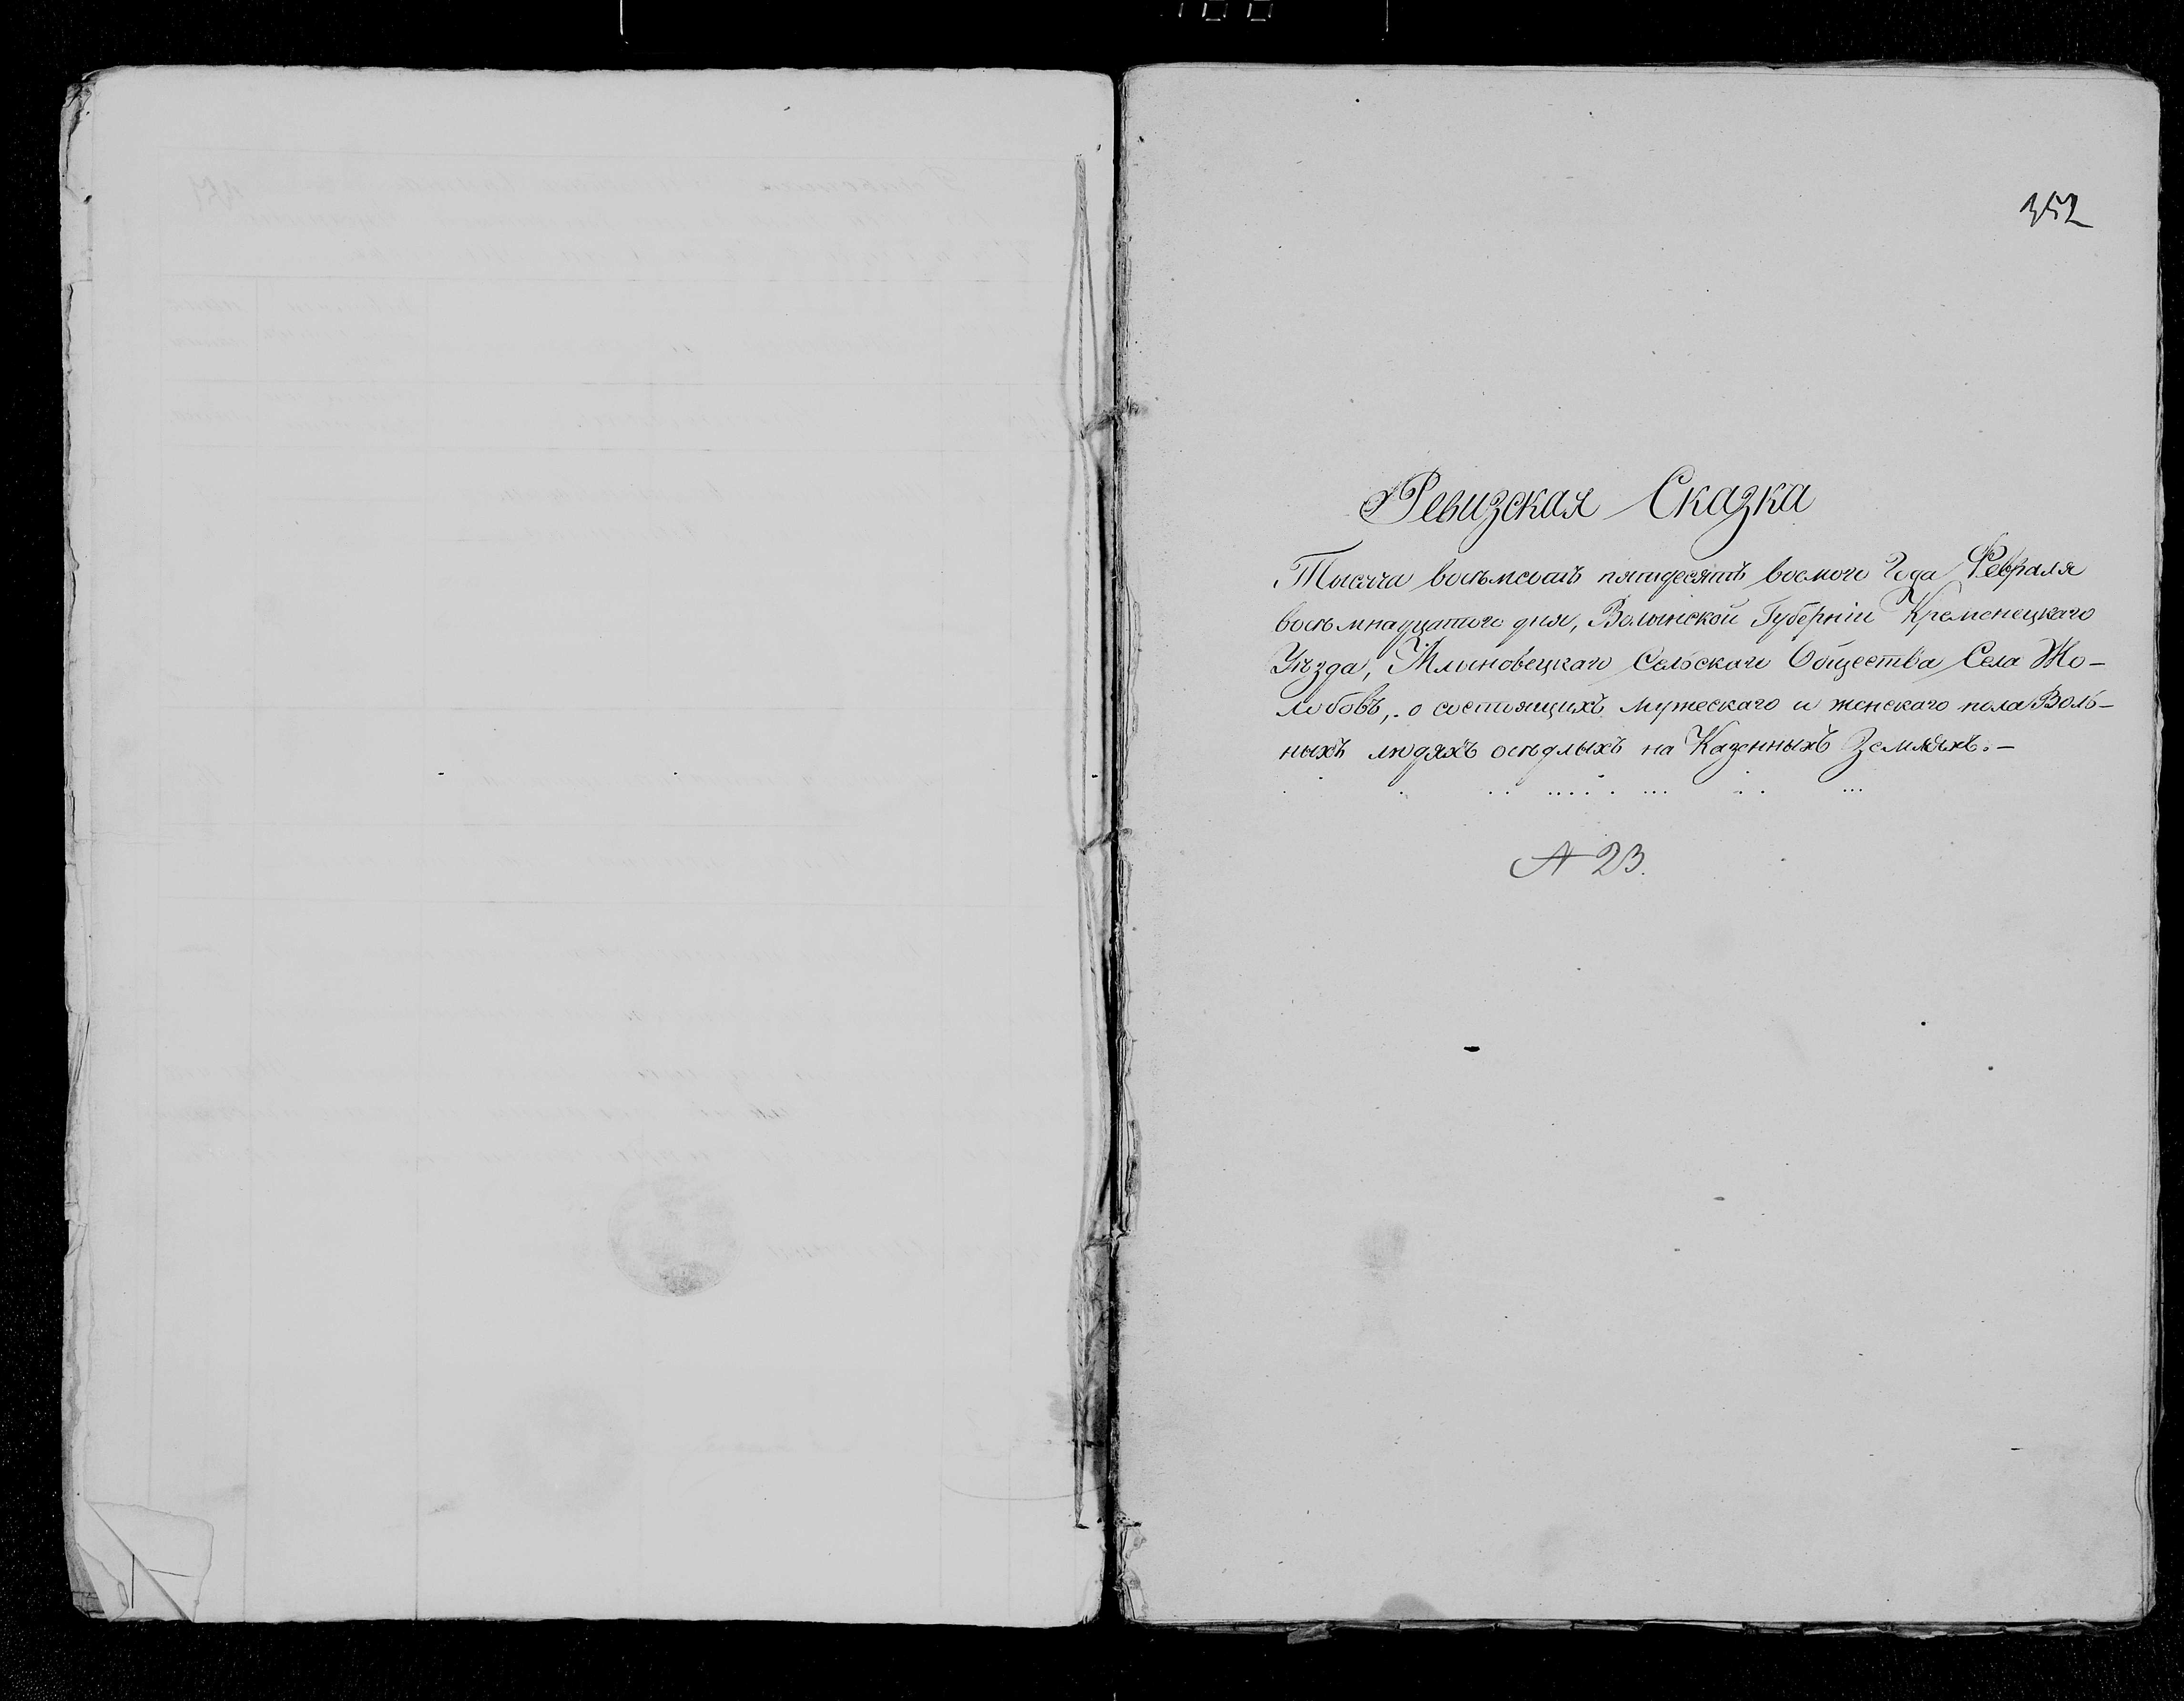 352
Ревизская Сказка
Тысяча восемсотъ пятьдесятъ восмого Года Февраля
восемнадцатого дня, Волынской Губерніи Кременецкаго
Уѣзда, Млыновецкаго Сельскаго Общества Села Жо-
лобовъ, о состоящихъ мужескаго и женскаго пола Воль-
ныхъ людяхъ осѣдлыхъ на Казенныхъ Земляхъ.–
№ 23.